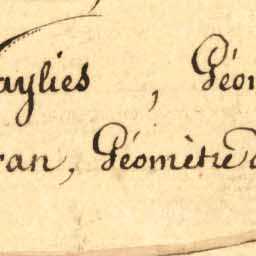 aylies, Géom
ran, Géomètre d